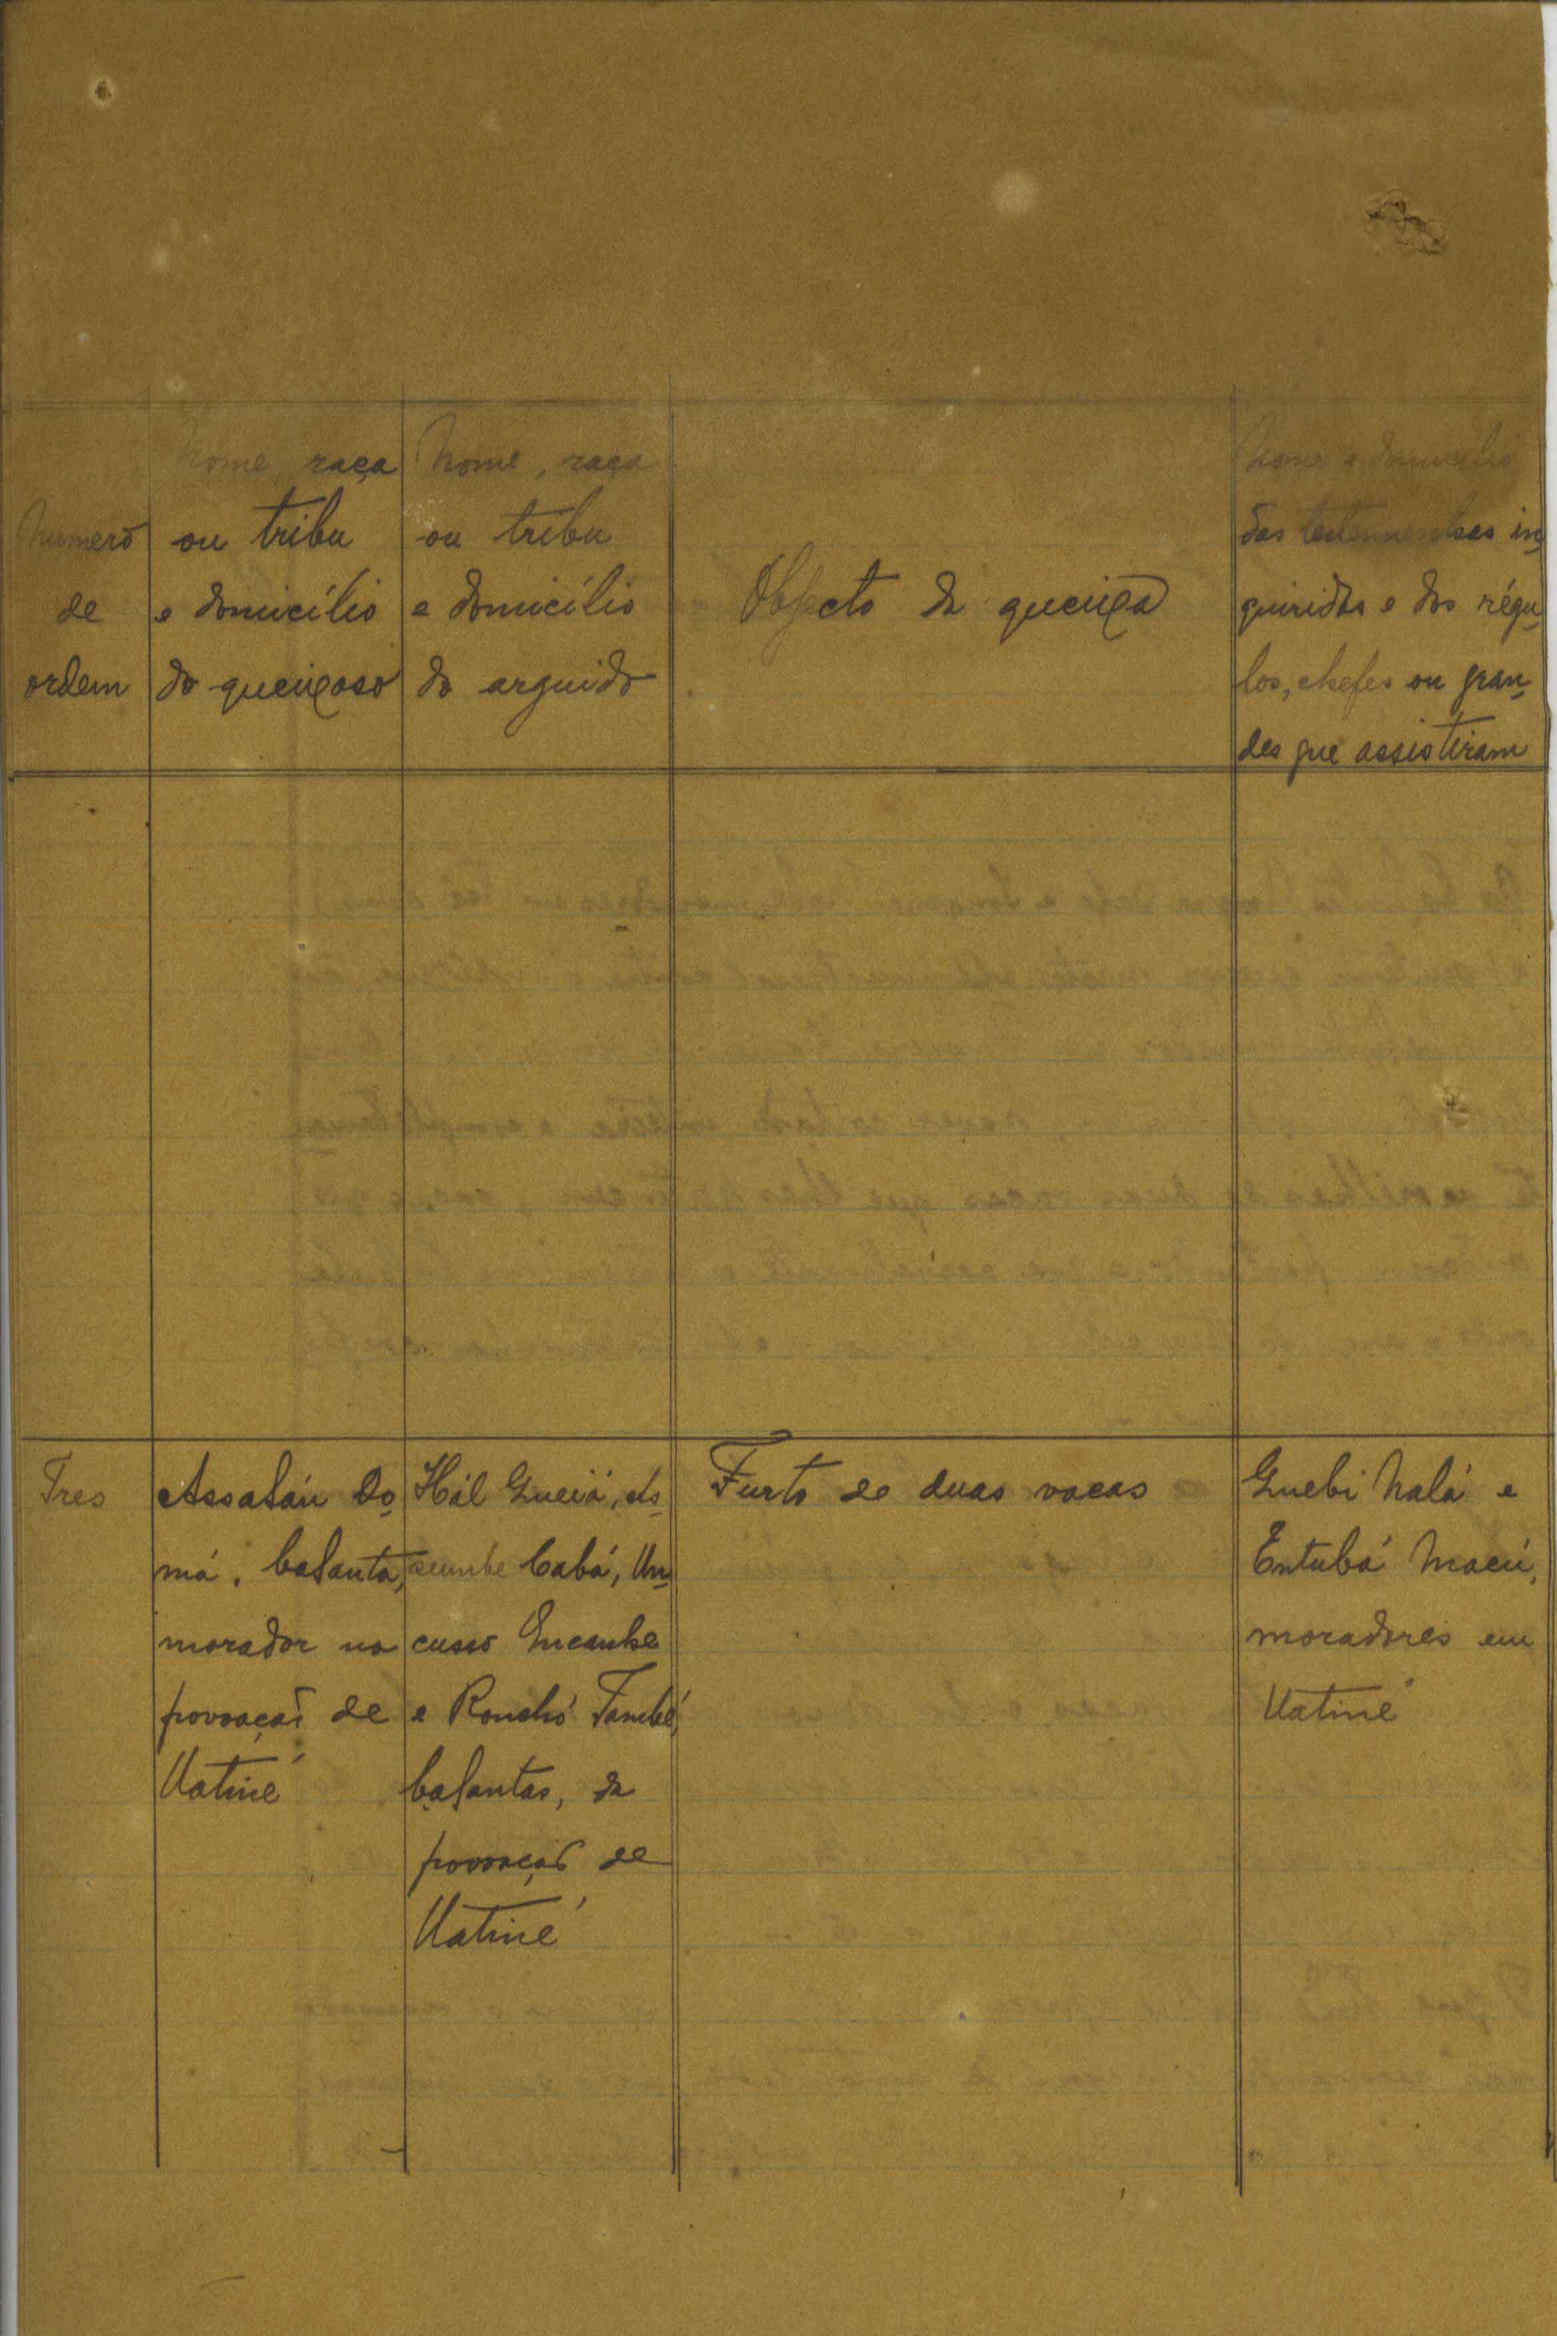 Numero
de
ordem
Nome, raça
ou tribu
e domicílio
do queixoso
Nome, raça
ou tribu
e domicílio
do arguido
Objecto da queixa
Nome e domicílio
das testemunhas in-
quiridas e dos régu-
los, chefes ou gran-
des que assistiram
Tres
Assalán Do-
má, balanta,
morador na
povoação de
Uatiné
Hál Gueiá, As-
cumbe Cabá, Un-
cusso Encanhe
e Ronchó Também,
balantas, da
povoação de
Uatiné
Furto de duas vacas
Guebi Nalá e
Entubá Macú,
moradores em
Uatiné